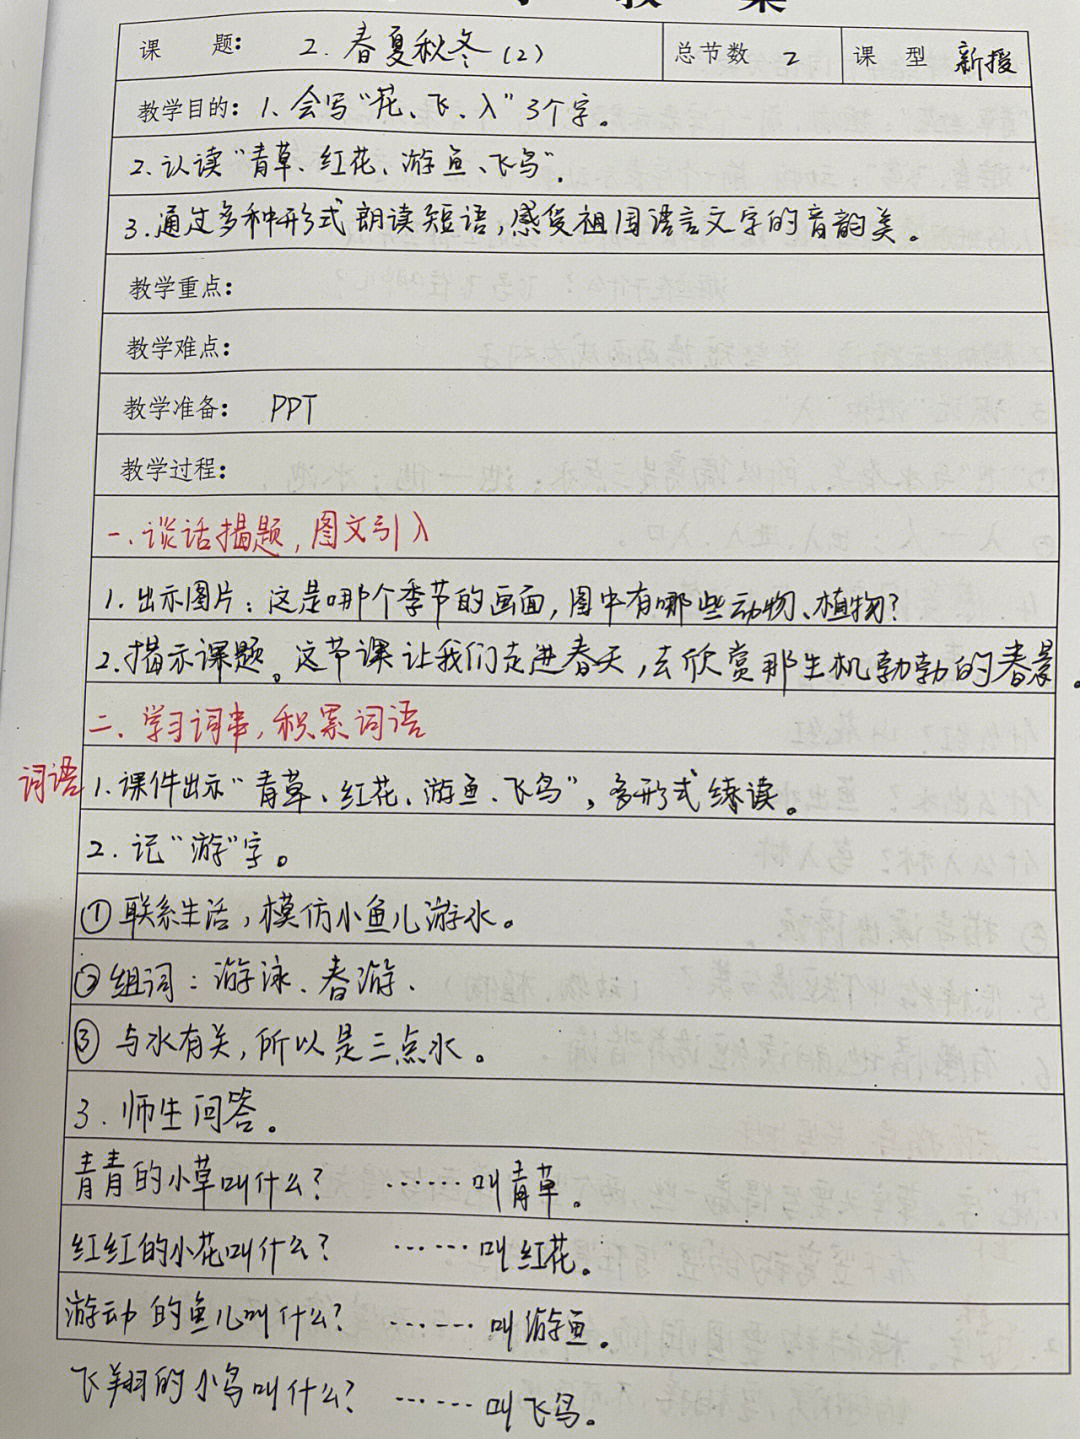 教案
课 题: 2.春夏秋冬(2) 总节数 2 课 型 新授
教学目的: 1.会写“花、飞、入”3个字。
2.认读“青草、红花、游鱼、飞鸟”.
3.通过多种形式朗读短语,感受祖国语言文字的音韵美。
教学重点:
教学难点:
教学准备: PPT
教学过程:
一.谈话揭题,图文引入
1.出示图片:这是哪个季节的画面,图中有哪些动物、植物?
2.揭示课题。这节课让我们走进春天,去欣赏那生机勃勃的春景。
二、学习词串,积累词语
词语
1.课件出示“青草、红花、游鱼、飞鸟”,多形式练读。
2.记“游”字。
①联系生活,模仿小鱼儿游水。
②组词:游泳.春游.
③与水有关,所以是三点水。
3.师生问答。
青青的小草叫什么? ……叫青草。
红红的小花叫什么? ……叫红花。
游动的鱼儿叫什么? ……叫游鱼。
飞翔的小鸟叫什么? ……叫飞鸟。